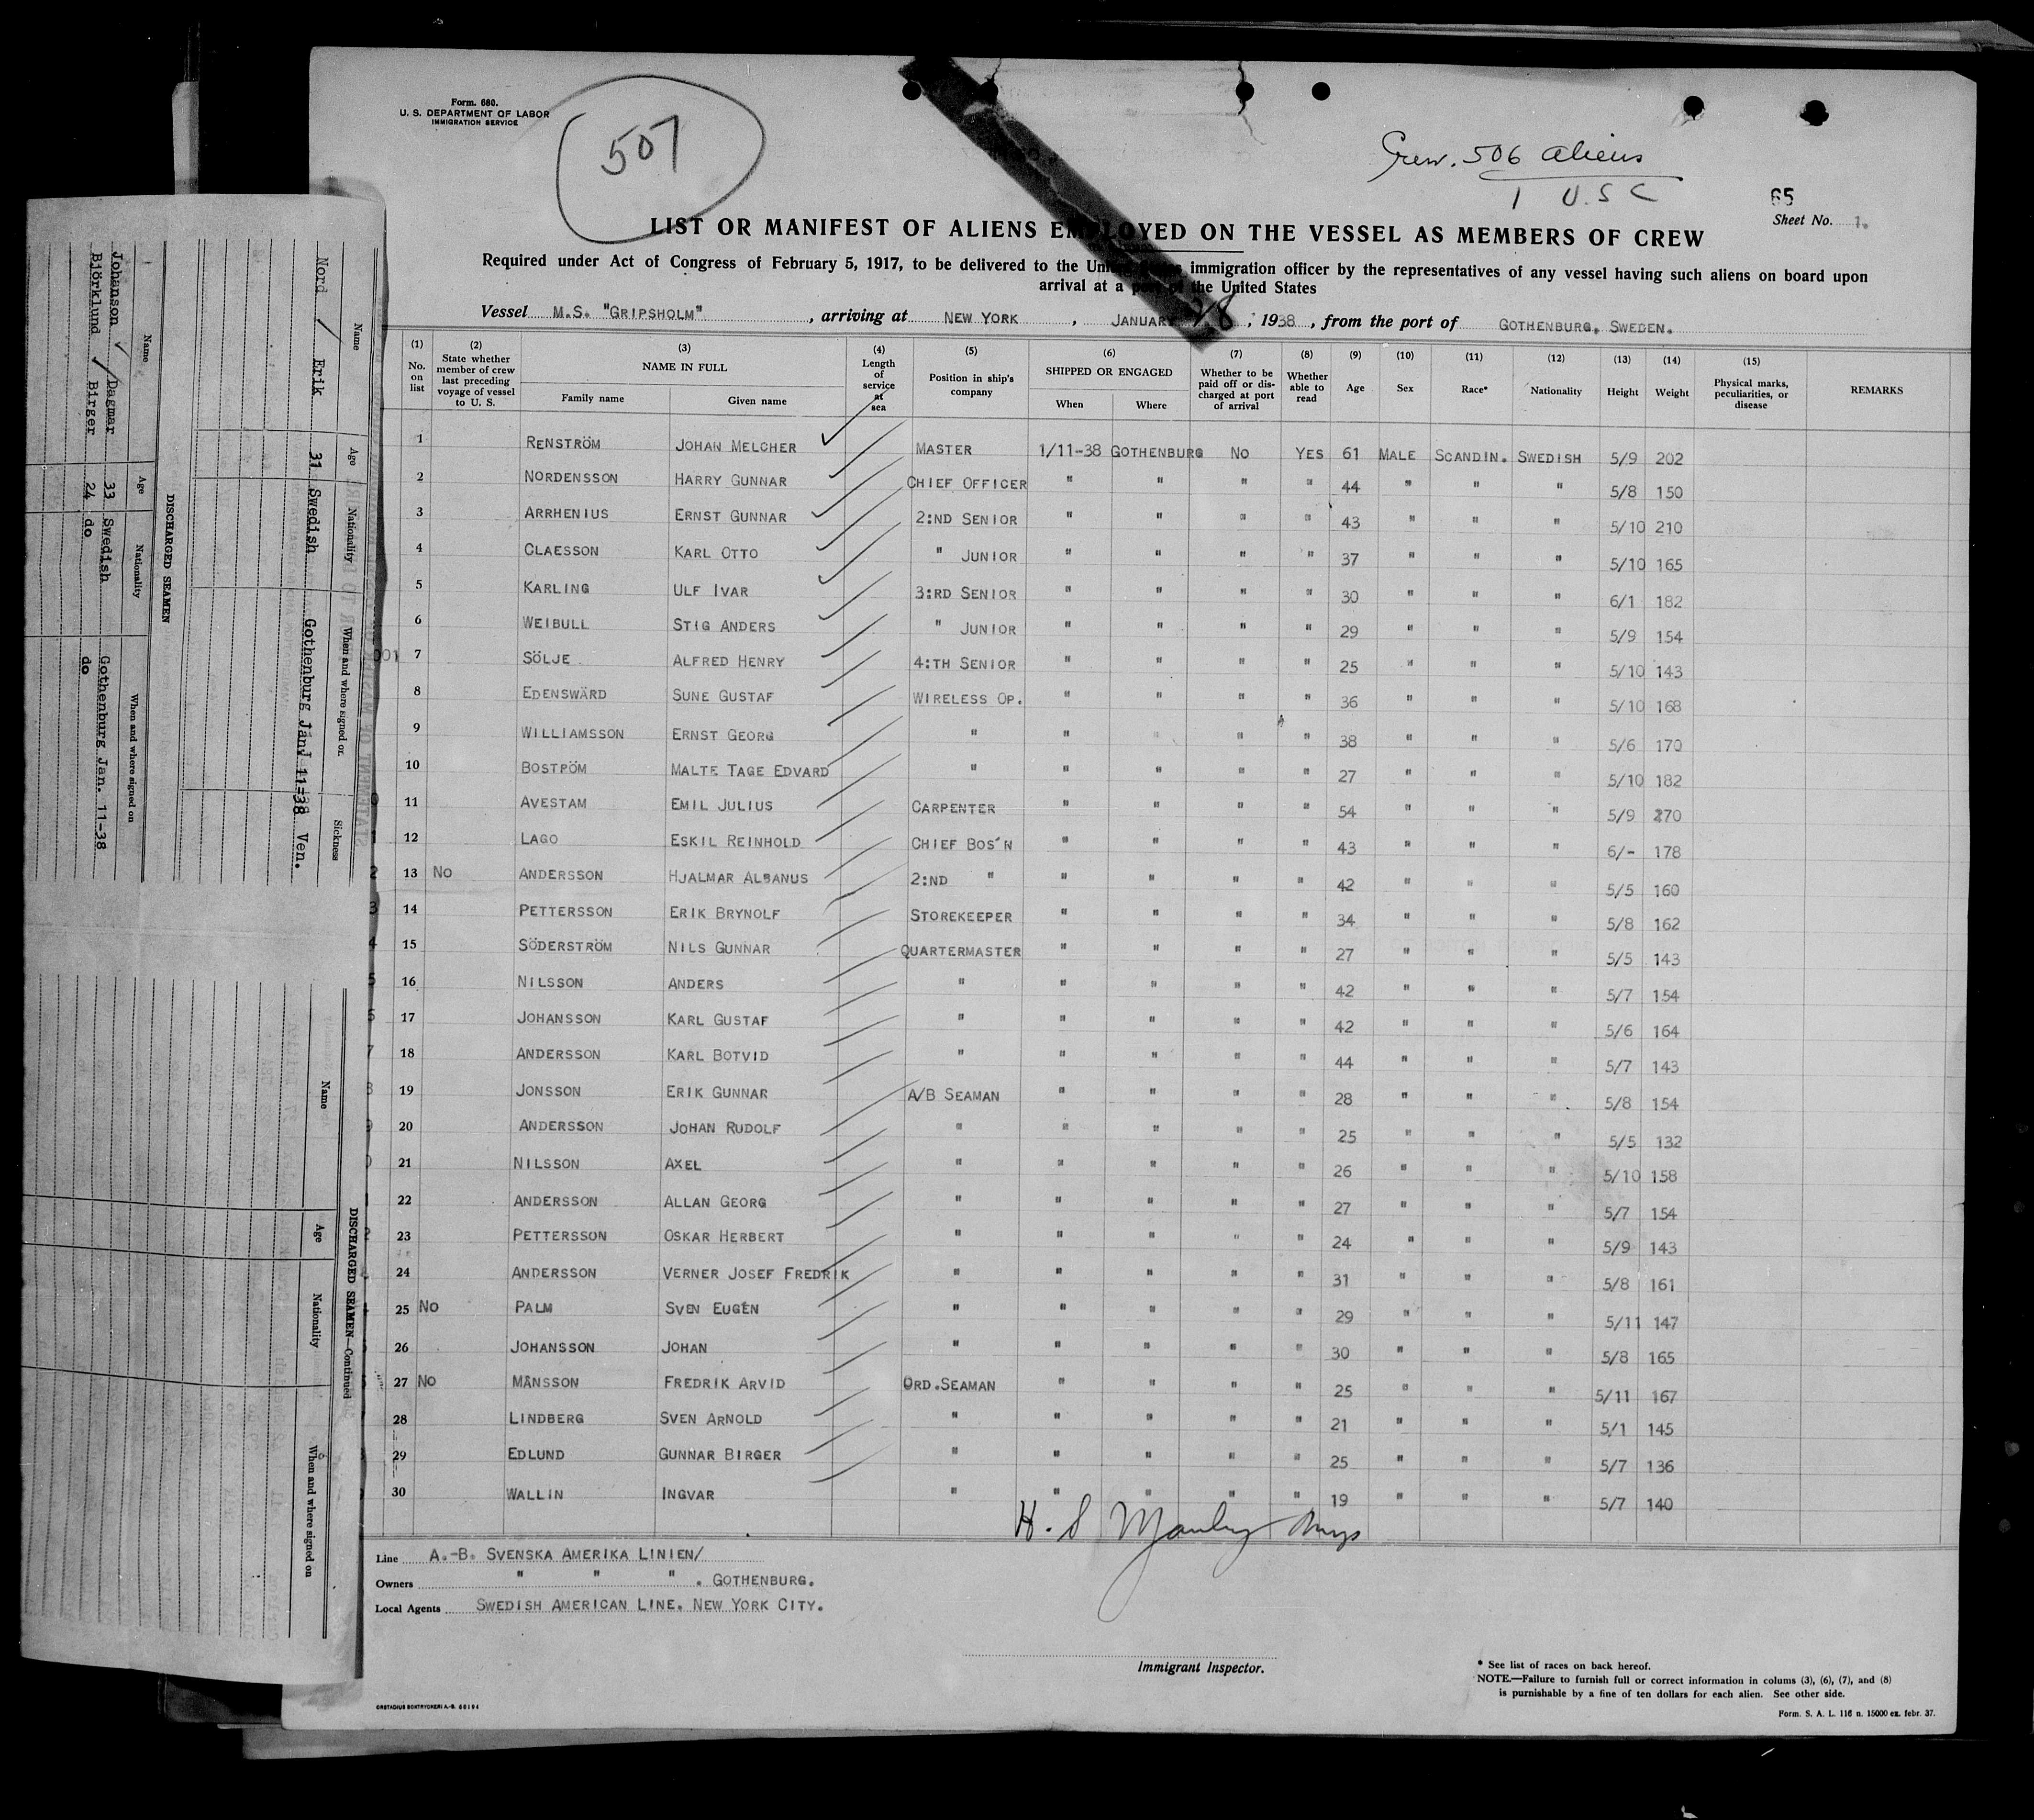 Form. 680.
U. S. DEPARTMENT OF LABOR
IMMIGRATION SERVICE
507
Crew. 506 aliens
1 U.S C
65
Sheet No. 1.
LIST OR MANIFEST OF ALIENS EMPLOYED ON THE VESSEL AS MEMBERS OF CREW
Required under Act of Congress of February 5, 1917, to be delivered to the United States immigration officer by the representatives of any vessel having such aliens on board upon
arrival at a port of the United States
Vessel M.S. "GRIPSHOLM", arriving at NEW YORK, JANUARY 1938, from the port of GOTHENBURG, SWEDEN.
(1) No. on list (2) State whether member of crew last preceding voyage of vessel to U. S. (3) NAME IN FULL Family name Given name (4) Length of service at sea (5) Position in ship's company (6) SHIPPED OR ENGAGED When Where (7) Whether to be paid off or discharged at port of arrival (8) Whether able to read (9) Age (10) Sex (11) Race* (12) Nationality (13) Height (14) Weight (15) Physical marks, peculiarities, or disease REMARKS
1 RENSTRÖM JOHAN MELCHER MASTER 1/11-38 GOTHENBURG NO YES 61 MALE SCANDIN. SWEDISH 5/9 202
2 NORDENSSON HARRY GUNNAR CHIEF OFFICER " " " " 44 " " " 5/8 150
3 ARRHENIUS ERNST GUNNAR 2:ND SENIOR " " " " 43 " " " 5/10 210
4 CLAESSON KARL OTTO " JUNIOR " " " " 37 " " " 5/10 165
5 KARLING ULF IVAR 3:RD SENIOR " " " " 30 " " " 6/1 182
6 WEIBULL STIG ANDERS " JUNIOR " " " " 29 " " " 5/9 154
7 SÖLJE ALFRED HENRY 4:TH SENIOR " " " " 25 " " " 5/10 143
8 EDENSWÄRD SUNE GUSTAF WIRELESS OP. " " " " 36 " " " 5/10 168
9 WILLIAMSSON ERNST GEORG " " " " " 38 " " " 5/6 170
10 BOSTRÖM MALTE TAGE EDVARD " " " " " 27 " " " 5/10 182
11 AVESTAM EMIL JULIUS CARPENTER " " " " 54 " " " 5/9 270
12 LAGO ESKIL REINHOLD CHIEF BOS'N " " " " 43 " " " 6/- 178
13 NO ANDERSSON HJALMAR ALBANUS 2:ND " " " " " 42 " " " 5/5 160
14 PETTERSSON ERIK BRYNOLF STOREKEEPER " " " " 34 " " " 5/8 162
15 SÖDERSTRÖM NILS GUNNAR QUARTERMASTER " " " " 27 " " " 5/5 143
16 NILSSON ANDERS " " " " " 42 " " " 5/7 154
17 JOHANSSON KARL GUSTAF " " " " " 42 " " " 5/6 164
18 ANDERSSON KARL BOTVID " " " " " 44 " " " 5/7 143
19 JONSSON ERIK GUNNAR A/B SEAMAN " " " " 28 " " " 5/8 154
20 ANDERSSON JOHAN RUDOLF " " " " " 25 " " " 5/5 132
21 NILSSON AXEL " " " " " 26 " " " 5/10 158
22 ANDERSSON ALLAN GEORG " " " " " 27 " " " 5/7 154
23 PETTERSSON OSKAR HERBERT " " " " " 24 " " " 5/9 143
24 ANDERSSON VERNER JOSEF FREDRIK " " " " " 31 " " " 5/8 161
25 NO PALM SVEN EUGÉN " " " " " 29 " " " 5/11 147
26 JOHANSSON JOHAN " " " " " 30 " " " 5/8 165
27 NO MÅNSSON FREDRIK ARVID ORD.SEAMAN " " " " 25 " " " 5/11 167
28 LINDBERG SVEN ARNOLD " " " " " 21 " " " 5/1 145
29 EDLUND GUNNAR BIRGER " " " " " 25 " " " 5/7 136
30 WALLIN INGVAR " " " " " 19 " " " 5/7 140
H. S
Line A.-B. SVENSKA AMERIKA LINIEN/
Owners " " " . GOTHENBURG.
Local Agents SWEDISH AMERICAN LINE. NEW YORK CITY.
Immigrant Inspector.
* See list of races on back hereof.
NOTE.—Failure to furnish full or correct information in colums (3), (6), (7), and (8)
is punishable by a fine of ten dollars for each alien. See other side.
Form. S. A. L. 116 n. 15000 ex. febr. 37.
ORSTADIUS BOKTRYCKERI A.-B. 60194
Name Age Nationality When and where signed on Sickness
Nord Erik 31 Swedish Gothenburg Jan. 11-38 Ven.
DISCHARGED SEAMEN
Name Age Nationality When and where signed on
Johanson Dagmar 33 Swedish Gothenburg Jan. 11-38
Björklund Birger 24 do do
DISCHARGED SEAMEN—Continued
Name Age Nationality When and where signed on